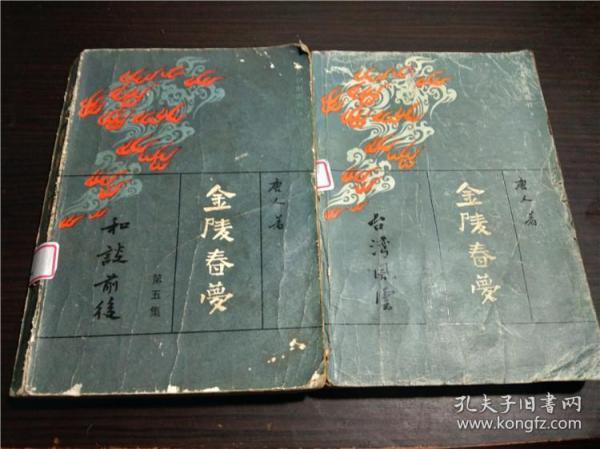 唐人著
金陵春梦
第五集
和谈前後
唐人著
金陵春梦
台湾风云
孔夫子旧书网
www.kongfz.com